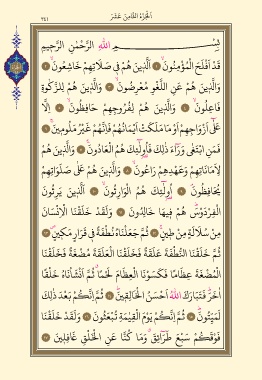 الجزء الثامن عشر
٣٤١
بسم الله الرحمن الرحيم
قد أفلح المؤمنون ١ الذين هم في صلاتهم خاشعون ٢
والذين هم عن اللغو معرضون ٣ والذين هم للزكوة
فاعلون ٤ والذين هم لفروجهم حافظون ٥ إلا
على أزواجهم أو ما ملكت أيمانهم فإنهم غير ملومين ٦
فمن ابتغى وراء ذلك فأولئك هم العادون ٧ والذين هم
لأماناتهم وعهدهم راعون ٨ والذين هم على صلواتهم
يحافظون ٩ أولئك هم الوارثون ١٠ الذين يرثون
الفردوس هم فيها خالدون ١١ ولقد خلقنا الإنسان
من سلالة من طين ١٢ ثم جعلناه نطفة في قرار مكين ١٣
ثم خلقنا النطفة علقة فخلقنا العلقة مضغة فخلقنا
المضغة عظاما فكسونا العظام لحما ثم أنشأناه خلقا
آخر فتبارك الله أحسن الخالقين ١٤ ثم إنكم بعد ذلك
لميتون ١٥ ثم إنكم يوم القيمة تبعثون ١٦ ولقد خلقنا
فوقكم سبع طرائق وما كنا عن الخلق غافلين ١٧